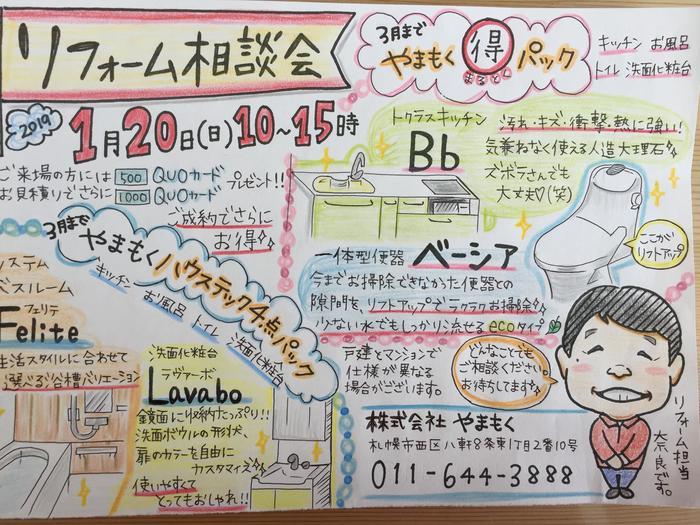 リフォーム相談会
2019
1月20日(日)10~15時
ご来場の方には 500 QUOカード
お見積りでさらに 1000 QUOカード
プレゼント!!
ご成約でさらに
お得
3月まで
やまもく 得 パック
まるとく
キッチン お風呂
トイレ 洗面化粧台
トクラスキッチン
Bb
汚れ・キズ・衝撃・熱に強い!
気兼ねなく使える人造大理石
ズボラさんでも
大丈夫♡(笑)
一体型便器 ベーシア
今までお掃除できなかった便器との
隙間を、リフトアップでラクラクお掃除
少ない水でもしっかり流せるecoタイプ
ここが
リフトアップ
3月まで
やまもく ハウステック4点パック
キッチン お風呂 トイレ 洗面化粧台
システム
バスルーム
フェリテ
Felite
生活スタイルに合わせて
選べる浴槽バリエーション
洗面化粧台
ラヴァーボ
Lavabo
鏡面に収納たっぷり!!
洗面ボウルの形状、
扉のカラーを自由に
カスタマイズ
使いやすくて
とってもおしゃれ!!
戸建とマンションで
仕様が異なる
場合がございます。
どんなことでも
ご相談ください。
お待ちしてます
株式会社 やまもく
札幌市西区八軒8条東1丁目2番10号
011-644-3888
リフォーム担当
奈良です。